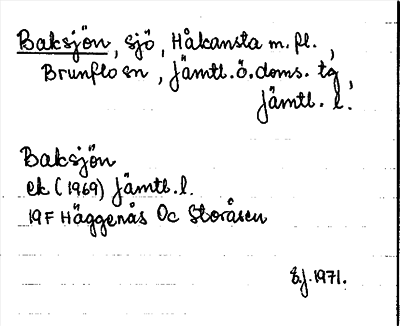 Baksjön, sjö, Håkansta m. fl.,
Brunflo sn, Jämtl. ö. doms. tg,
Jämtl. l.
Baksjön
ek (1969) Jämtl. l.
19F Häggenås 0c Storåsen
E.J. 1971.